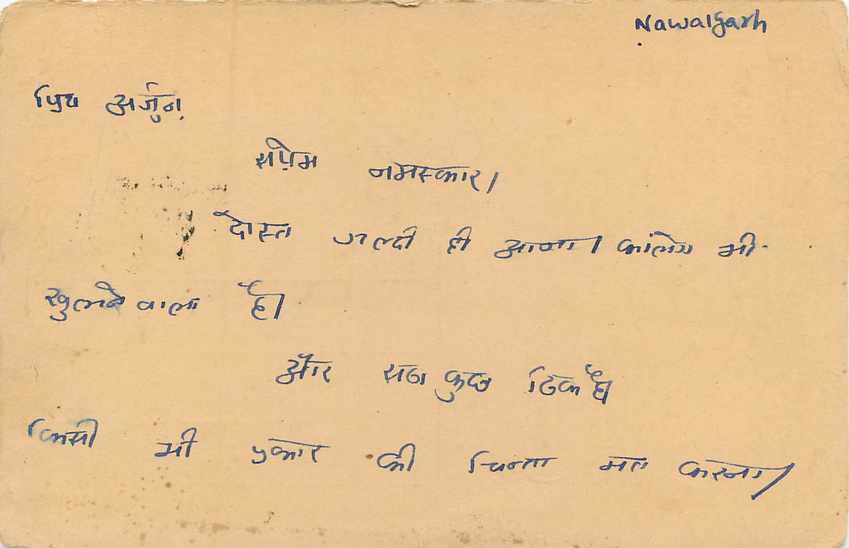 Nawalgarh
प्रिय अर्जुन,
सप्रेम नमस्कार।
दोस्त जल्दी ही आना। कॉलेज भी
खुलने वाला है।
और सब कुछ ठिक है
किसी भी प्रकार की चिन्ता मत करना।